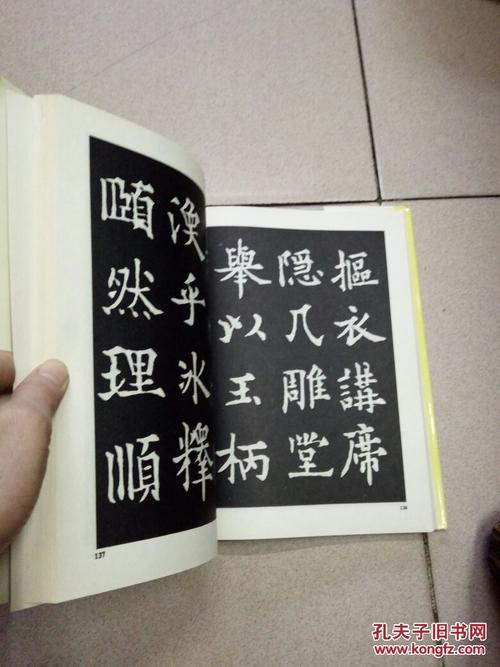 摳衣講席
隱几雕堂
舉以玉柄
136
渙乎冰釋
頤然理順
137
孔夫子旧书网
www.kongfz.com